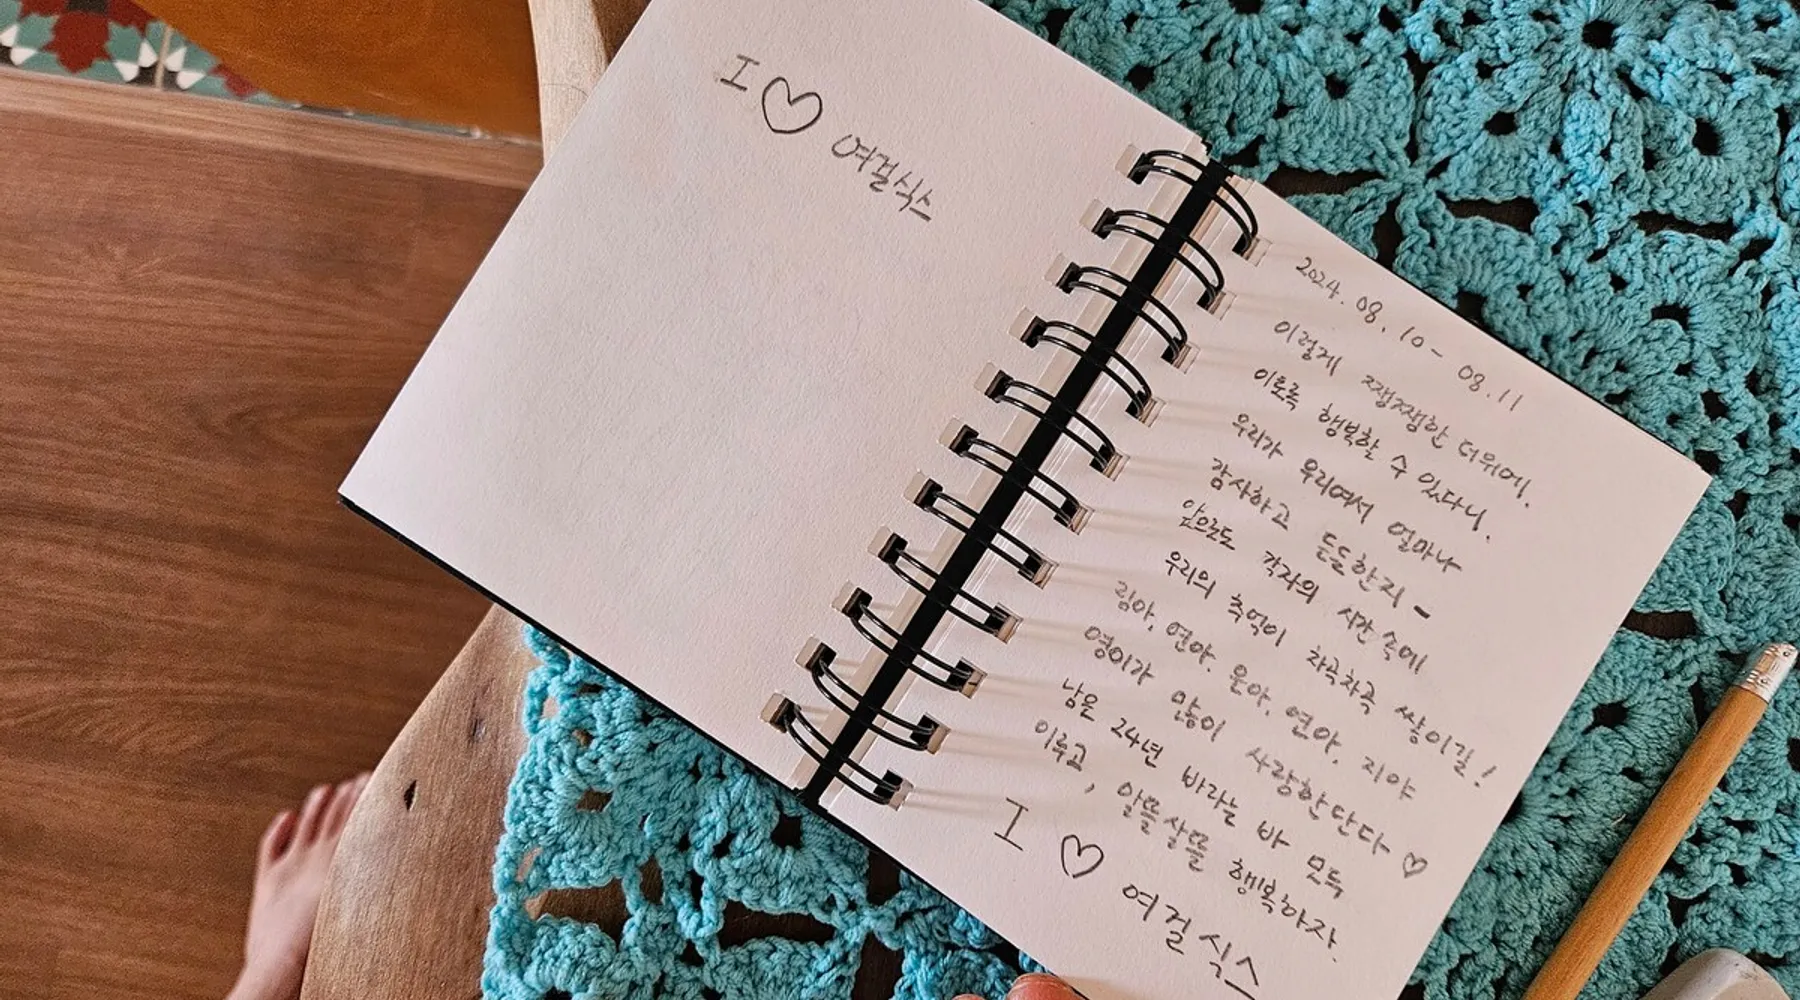 I ♡ 여걸식스
2024. 08. 10 - 08. 11
이렇게 쨍쨍한 더위에.
이토록 행복할 수 있다니.
우리가 우리여서 얼마나
감사하고 든든한지 -
앞으로도 각자의 시간 속에
우리의 추억이 차곡차곡 쌓이길!
림아. 연아. 윤아. 연아. 지야
영이가 많이 사랑한단다 ♡
남은 24년 바라는 바 모두
이루고, 알뜰살뜰 행복하자.
I ♡ 여걸식스